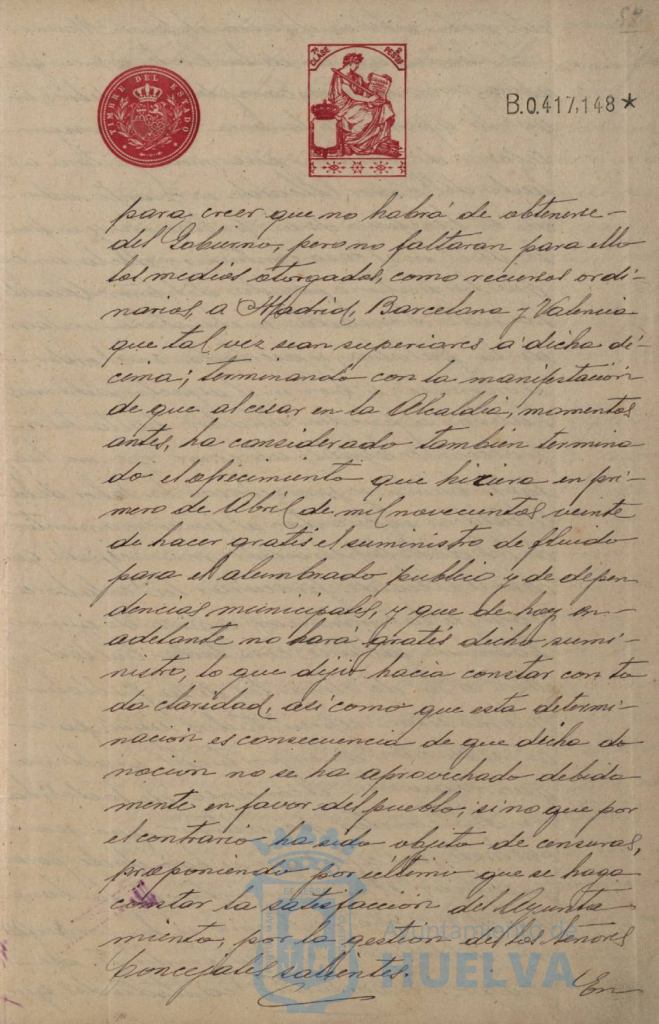 54
TIMBRE DEL ESTADO
CLASE
PESETAS
B.0.417,148*
para creer que no habrá de obtenerse-
del Gobierno, pero no faltaran para ello
los medios otorgados, como recursos ordi-
narios, a Madrid, Barcelona y Valencia
que tal vez sean superiores á dicha dé-
cima; terminando con la manifestación
de que al cesar en la Alcaldía, momentos
antes, ha considerado tambien termina
do el ofrecimiento que hiciera en pri-
mero de Abril de mil novecientos veinte
de hacer gratis el suministro de fluido
para el alumbrado publico y de depen
dencias municipales, y que de hoy en-
adelante no hará gratis dicho sumi-
nistro, lo que dijo hacia constar con to
da claridad, asi como que esta determi-
nación es consecuencia de que dicha do
nación no se ha aprovechado debida
mente en favor del pueblo, sino que por
el contrario ha sido objeto de censuras,
proponiendo por último que se haga
constar la satisfacción del Ayunta
miento, por la gestión de los Señores
Concejales salientes.
En
Ayuntamiento de
HUELVA